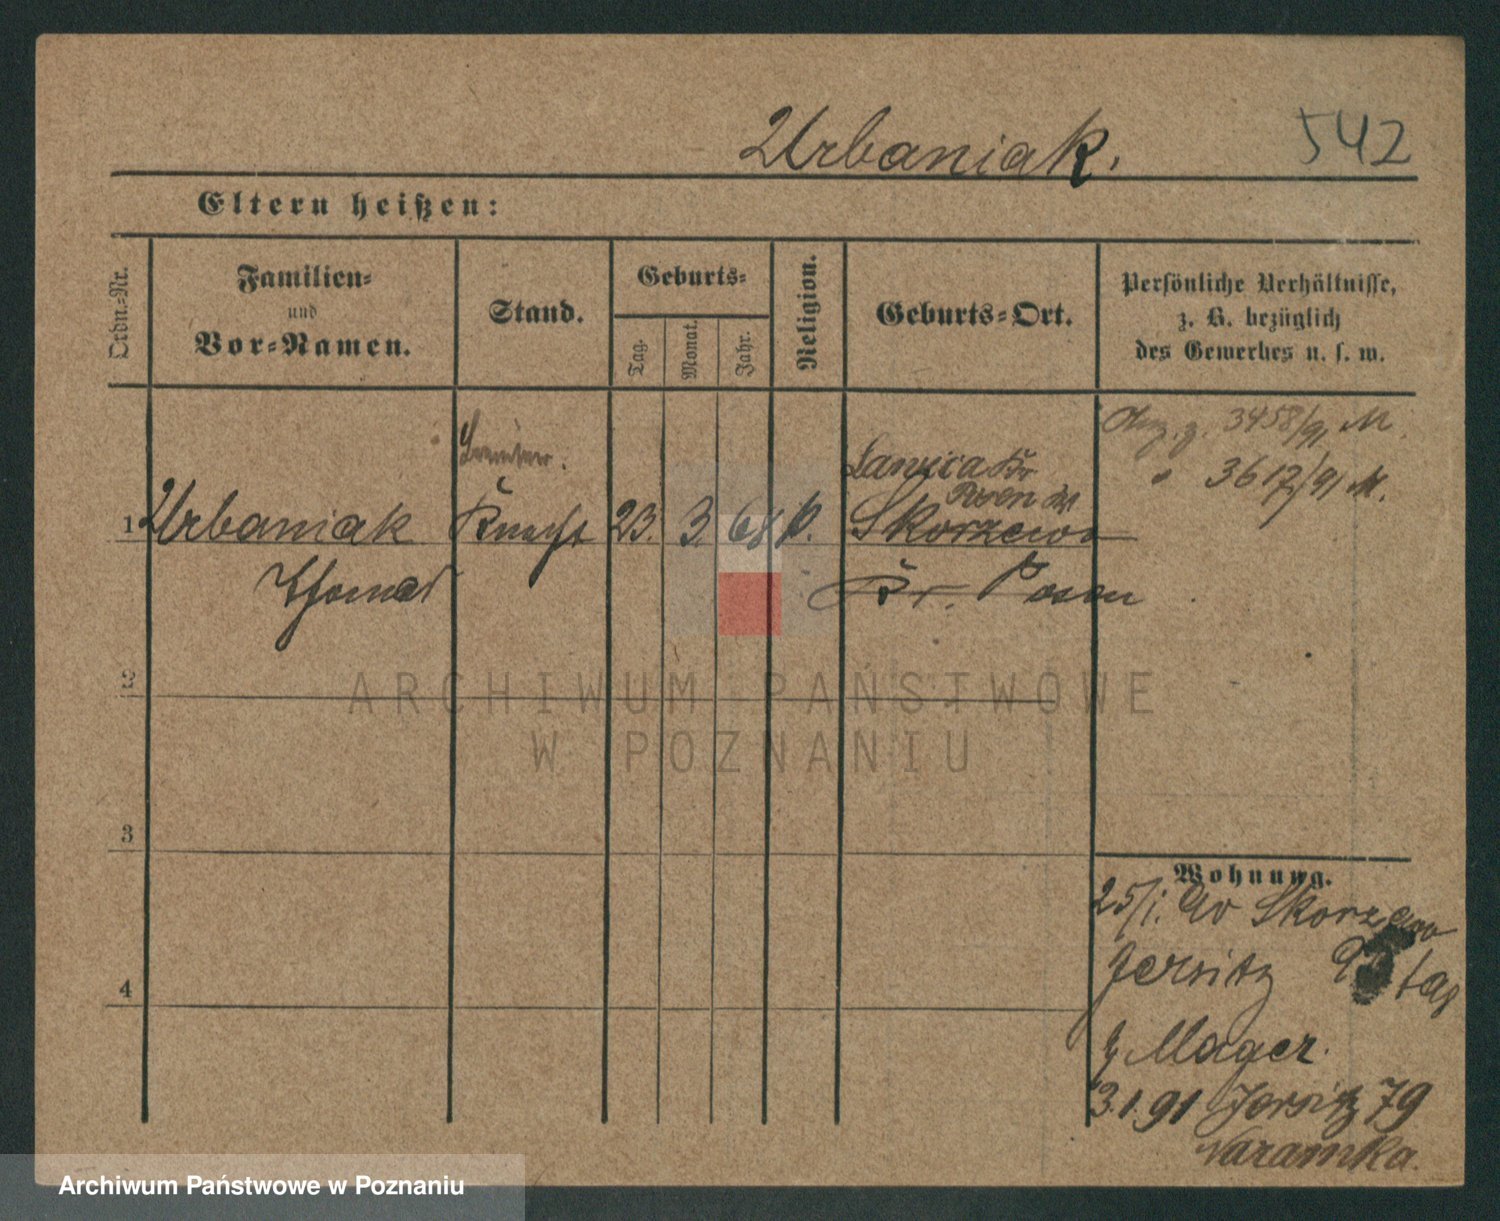 Urbaniak.
542
Eltern heißen:
Ordn.-Nr.
Familien-
und
Vor-Namen.
Stand.
Geburts-
Tag.
Monat.
Jahr.
Religion.
Geburts-Ort.
Persönliche Verhältnisse,
z. B. bezüglich
des Gewerbes u. s. w.
3458/91 M.
" 3617/91 M.
Kr
Posen
1 Urbaniak Knecht 23. 3. 68 k. Skorzewo
Thomas Kr. Posen
2
3
4
Wohnung.
25/1. Skorzewo
Jersitz
b Mager.
3.1.91 Jersitz 79
ARCHIWUM PAŃSTWOWE
W POZNANIU
Archiwum Państwowe w Poznaniu